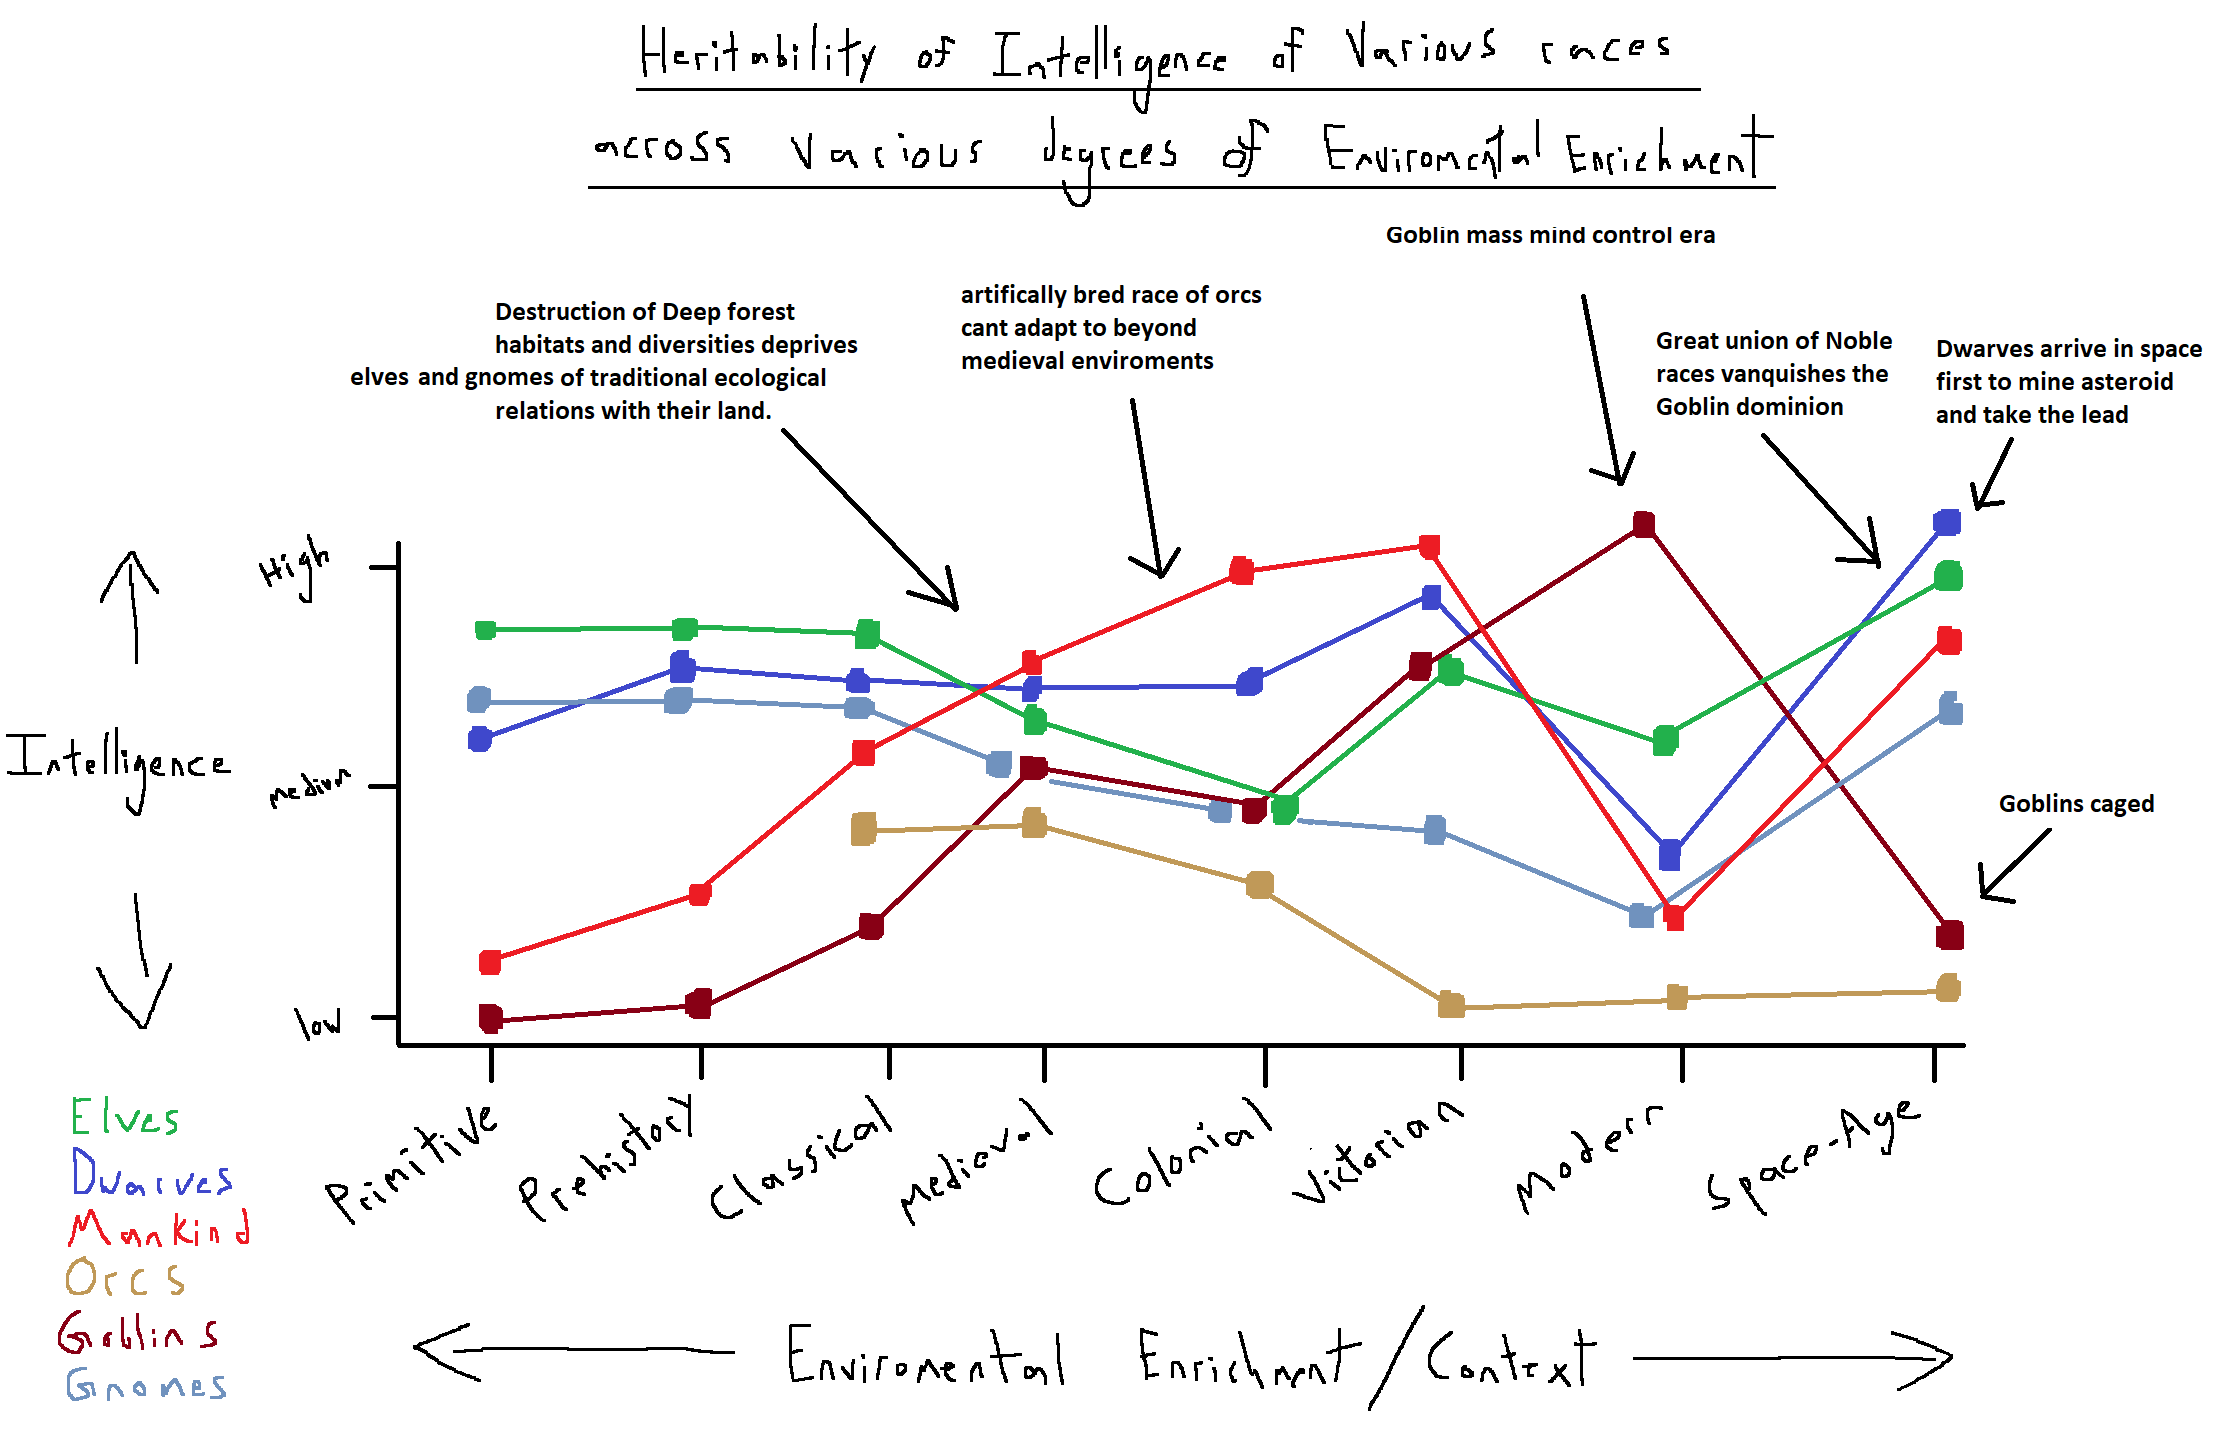 Heritability of Intelligence of Various races
across Various degrees of Enviromental Enrichment
Goblin mass mind control era
Destruction of Deep forest
habitats and diversities deprives
elves and gnomes of traditional ecological
relations with their land.
artifically bred race of orcs
cant adapt to beyond
medieval enviroments
Great union of Noble
races vanquishes the
Goblin dominion
Dwarves arrive in space
first to mine asteroid
and take the lead
High
Intelligence
medium
low
Goblins caged
Elves
Dwarves
Mankind
Orcs
Goblins
Gnomes
Primitive
Prehistory
Classical
Medieval
Colonial
Victorian
Modern
Space-Age
Enviromental Enrichment/Context